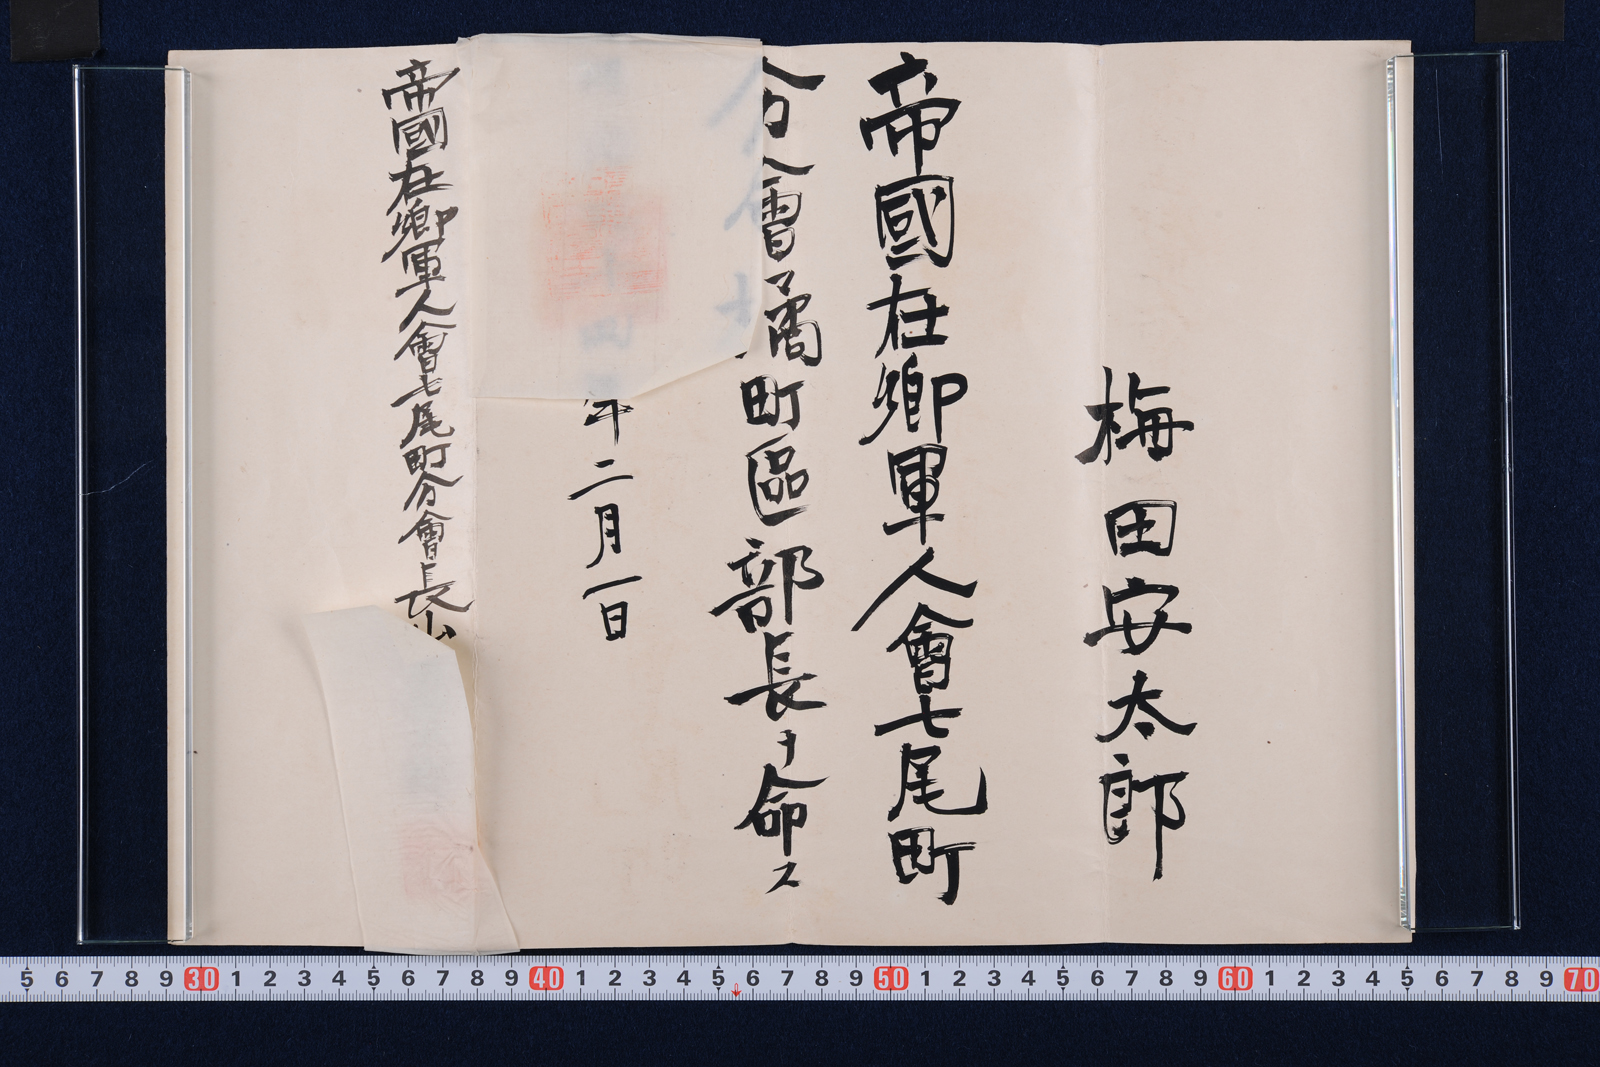 梅田安太郎
帝國在郷軍人會七尾町
分會橘町區部長ヲ命ス
年二月一日
帝國在郷軍人會七尾町分會長
5 6 7 8 9 30 1 2 3 4 5 6 7 8 9 40 1 2 3 4 5 6 7 8 9 50 1 2 3 4 5 6 7 8 9 60 1 2 3 4 5 6 7 8 9 70